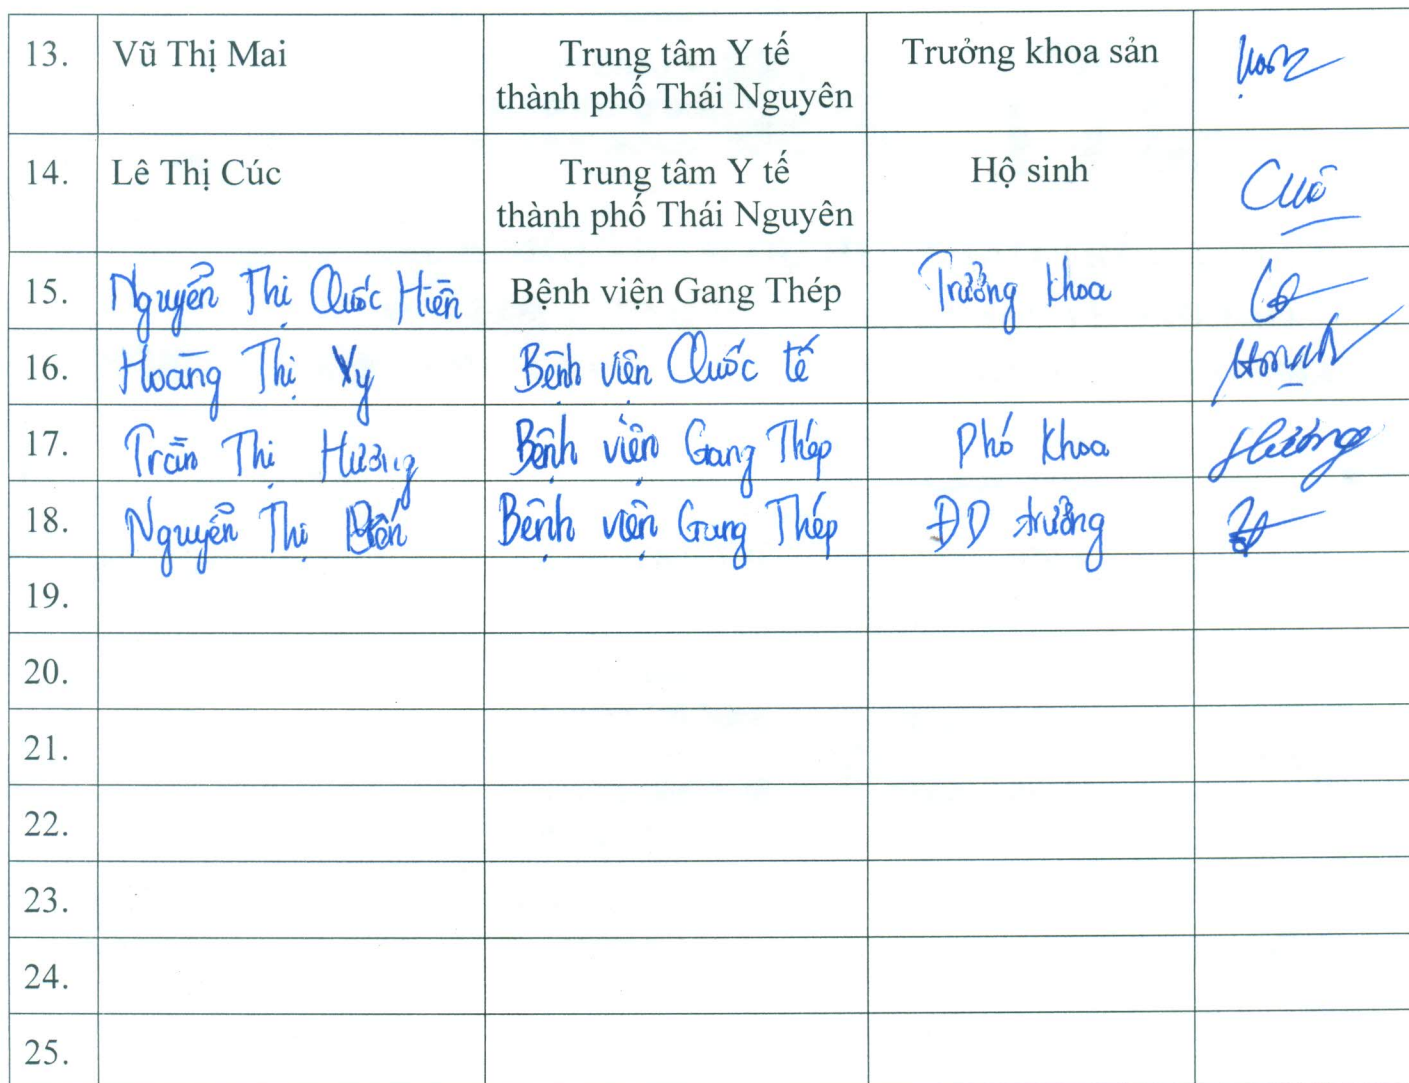 13. Vũ Thị Mai Trung tâm Y tế Trưởng khoa sản
thành phố Thái Nguyên
14. Lê Thị Cúc Trung tâm Y tế Hộ sinh
thành phố Thái Nguyên
15. Nguyễn Thị Quốc Hiền Bệnh viện Gang Thép Trưởng khoa
16. Hoàng Thị Vy Bệnh viện Quốc tế
17. Trần Thị Hương Bệnh viện Gang Thép Phó khoa Hương
18. Nguyễn Thị Bệnh viện Gang Thép ĐD trưởng
19.
20.
21.
22.
23.
24.
25.